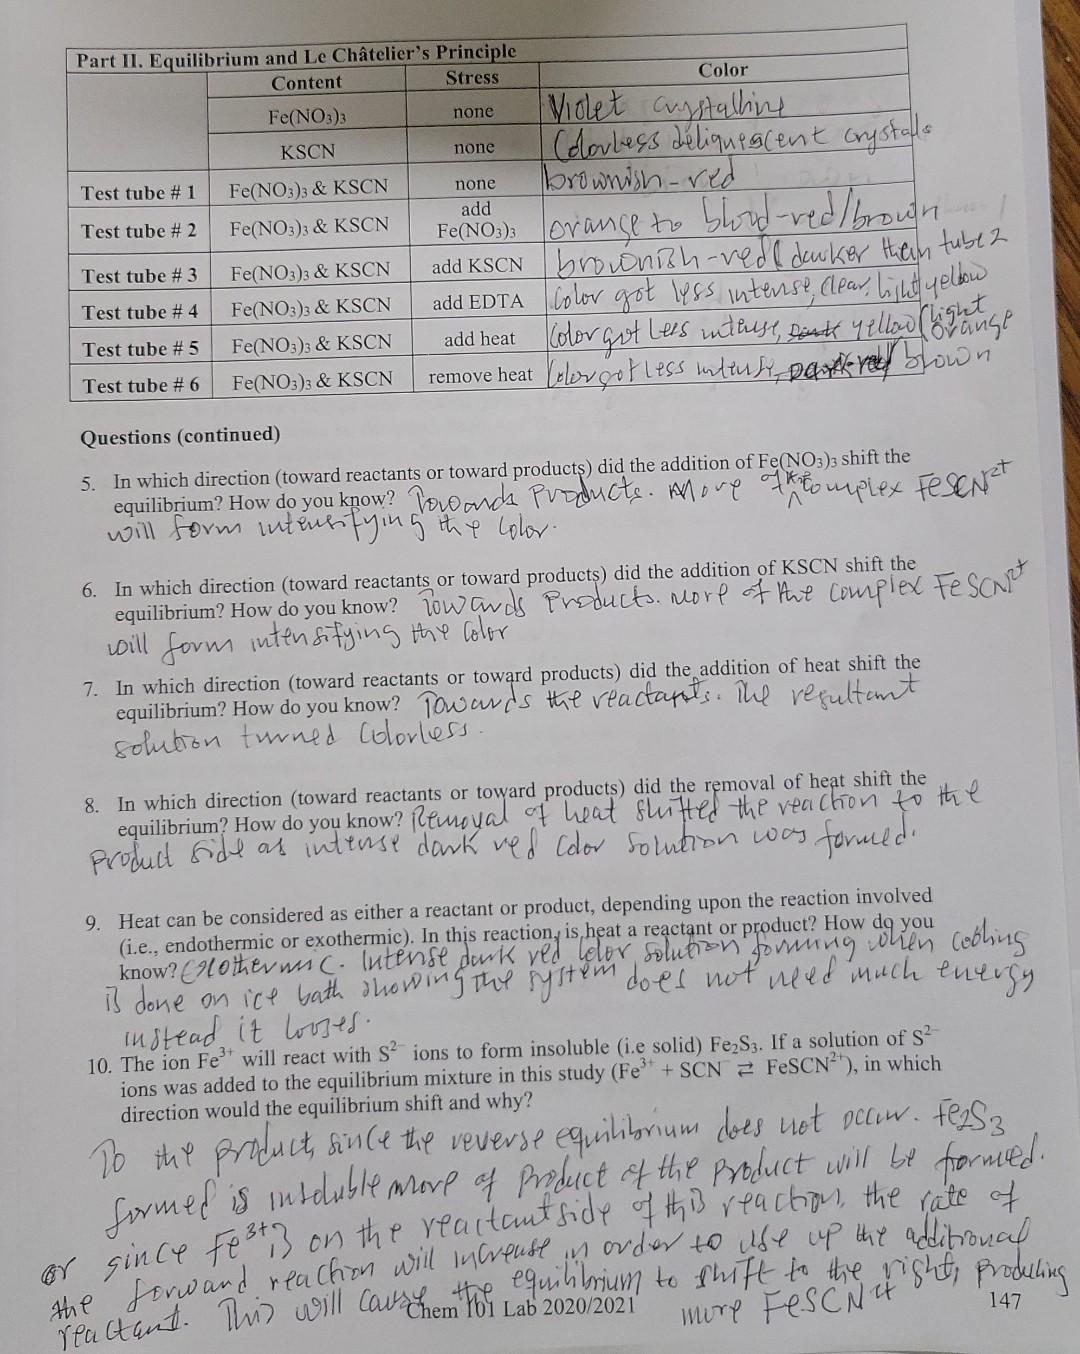 Part II. Equilibrium and Le Châtelier's Principle
Content Stress Color
Fe(NO₃)₃ none Violet crystalline
KSCN none Colorless deliquescent crystals
Test tube # 1 Fe(NO₃)₃ & KSCN none brownish-red
Test tube # 2 Fe(NO₃)₃ & KSCN add Fe(NO₃)₃ orange to blood-red/brown
Test tube # 3 Fe(NO₃)₃ & KSCN add KSCN brownish-red darker than tube 2
Test tube # 4 Fe(NO₃)₃ & KSCN add EDTA Color got less intense, clear, light yellow
Test tube # 5 Fe(NO₃)₃ & KSCN add heat Color got less intense, yellow (light orange
Test tube # 6 Fe(NO₃)₃ & KSCN remove heat Color got less intense, brown
Questions (continued)
5. In which direction (toward reactants or toward products) did the addition of Fe(NO₃)₃ shift the
equilibrium? How do you know? Towards Products. More of the complex FeSCN²⁺
will form intensifying the color.
6. In which direction (toward reactants or toward products) did the addition of KSCN shift the
equilibrium? How do you know? Towards Products. More of the complex FeSCN²⁺
will form intensifying the color
7. In which direction (toward reactants or toward products) did the addition of heat shift the
equilibrium? How do you know? Towards the reactants. The resultant
solution turned Colorless.
8. In which direction (toward reactants or toward products) did the removal of heat shift the
equilibrium? How do you know? Removal of heat shifted the reaction to the
product side as intense dark red color solution was formed.
9. Heat can be considered as either a reactant or product, depending upon the reaction involved
(i.e., endothermic or exothermic). In this reaction, is heat a reactant or product? How do you
know? Exothermic. Intense dark red color solution forming when cooling
is done on ice bath showing the system does not need much energy
instead it looses.
10. The ion Fe³⁺ will react with S²⁻ ions to form insoluble (i.e solid) Fe₂S₃. If a solution of S²⁻
ions was added to the equilibrium mixture in this study (Fe³⁺ + SCN⁻ ⇄ FeSCN²⁺), in which
direction would the equilibrium shift and why?
To the product, since the reverse equilibrium does not occur. Fe₂S₃
formed is insoluble more of product of the product will be formed.
or since Fe³⁺ is on the reactant side of this reaction, the rate of
the forward reaction will increase in order to use up the additional
reactant. This will cause the equilibrium to shift to the right, producing
more FeSCN²⁺
Chem 101 Lab 2020/2021
147